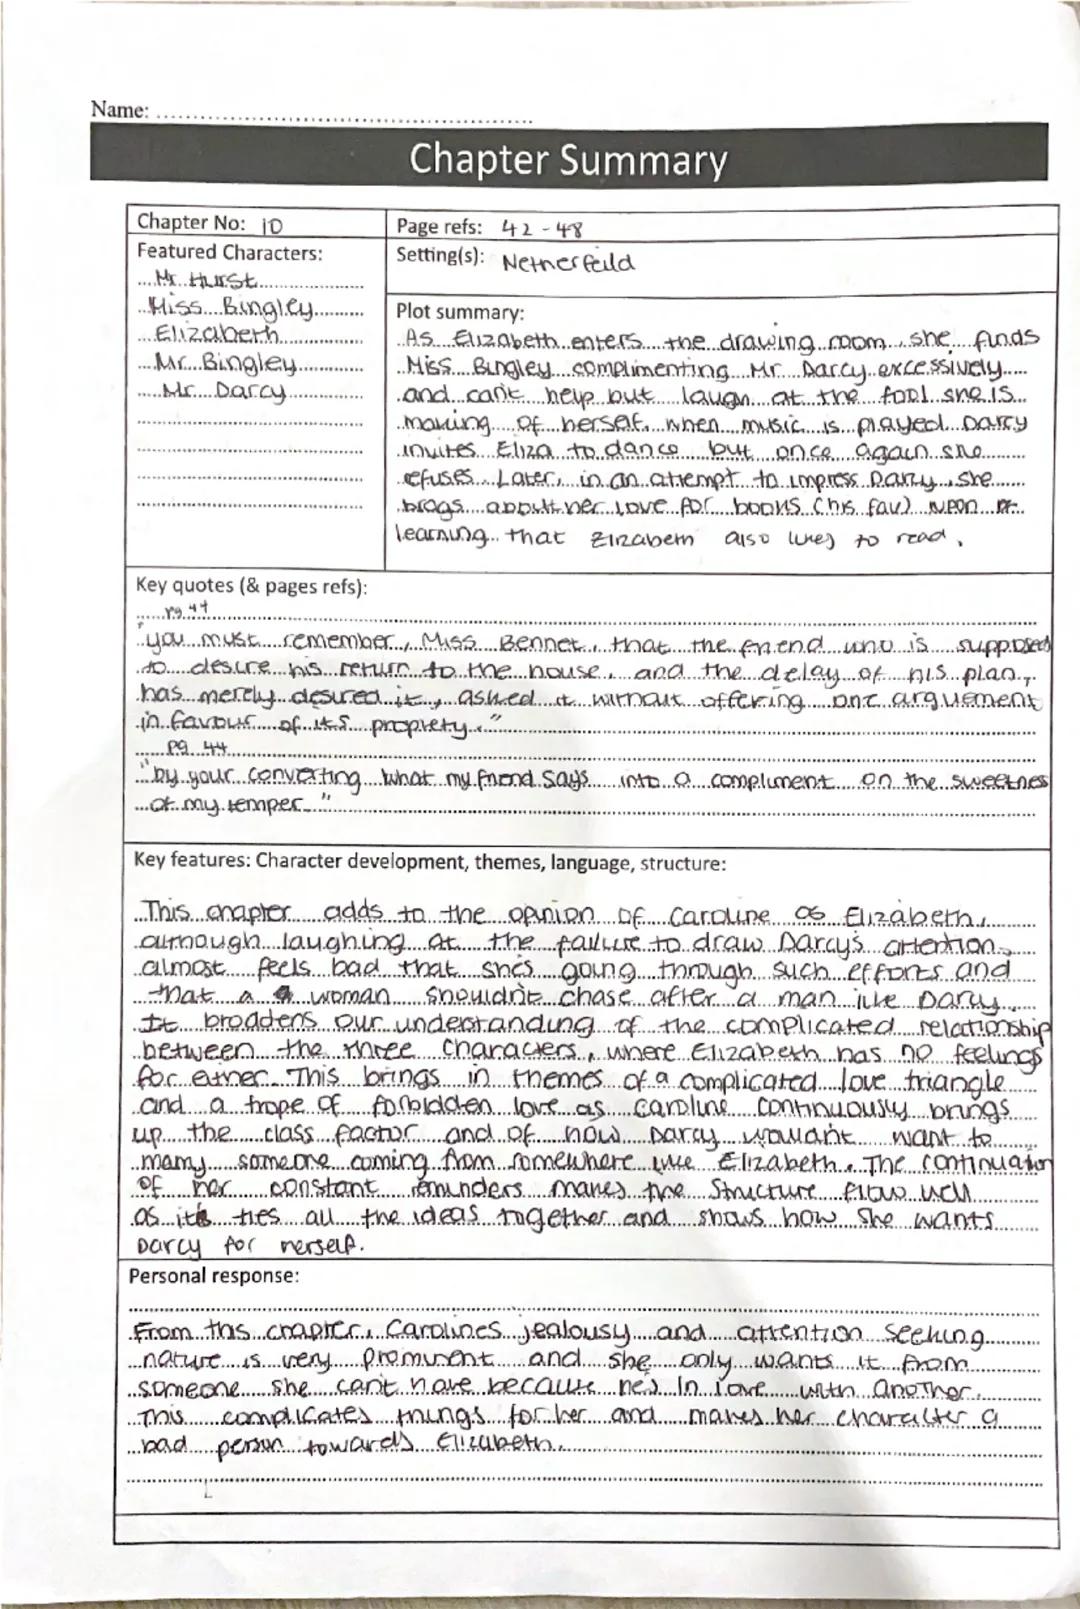 Name:
Chapter Summary
Chapter No: 10
Page refs: 42 - 48
Featured Characters:
Mr. Hurst
Miss Bingley
Elizabeth
Mr. Bingley
Mr. Darcy
Setting(s): Netherfeild
Plot summary:
As Elizabeth enters the drawing room, she finds
Miss Bingley complimenting Mr. Darcy excessively
and can't help but laugh at the fool she is
making of herself. when music is played Darcy
invites Eliza to dance but once again she
refuses. Later, in an attempt to impress Darcy, she
brags about her love for books (his fav) upon
learning that Elizabeth also likes to read.
Key quotes (& pages refs):
pg 44
"you must remember, Miss Bennet, that the friend who is supposed
to desire his return to the house, and the delay of his plan,
has merely desired it, asked it without offering one arguement
in favour of its propriety."
pg 44
"by your converting what my friend says into a compliment on the sweetness
of my temper."
Key features: Character development, themes, language, structure:
This chapter adds to the opinion of Caroline as Elizabeth,
although laughing at the failure to draw Darcy's attention,
almost feels bad that she's going through such efforts and
that a woman shouldn't chase after a man like Darcy.
It broadens our understanding of the complicated relationship
between the three characters, where Elizabeth has no feelings
for either. This brings in themes of a complicated love triangle
and a trope of forbidden love as Caroline continuously brings
up the class factor and of how Darcy wouldn't want to
marry someone coming from somewhere like Elizabeth. The continuation
of her constant reminders makes the structure flow well
as it ties all the ideas together and shows how she wants
Darcy for herself.
Personal response:
From this chapter, Carolines jealousy and attention seeking
nature is very prominent and she only wants it from
someone she can't have because he's in love with another.
This complicates things for her and makes her character a
bad person towards Elizabeth.